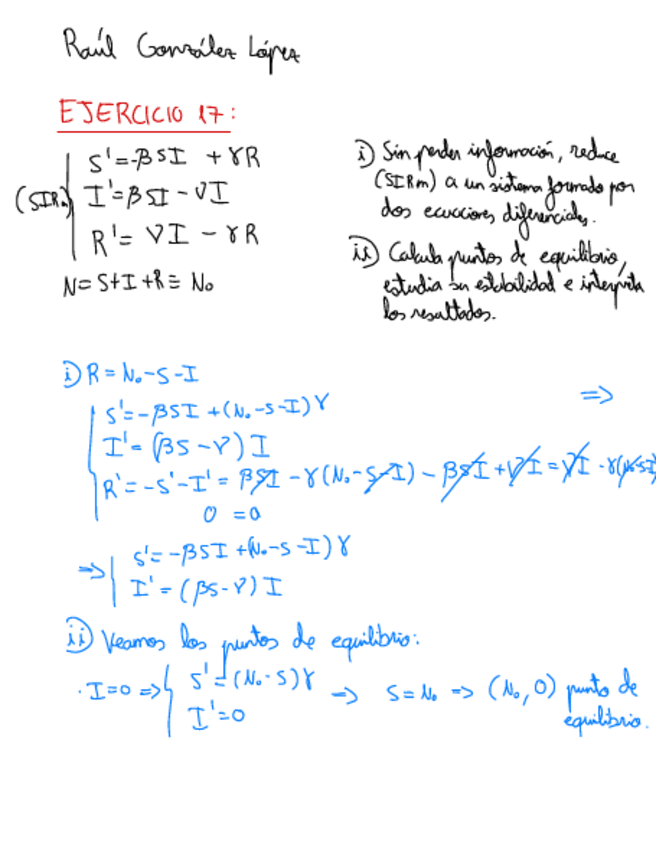 Raúl González López
EJERCICIO 17:
(SIRm) { S' = -βSI + γR
I' = βSI - νI
R' = νI - γR
N = S+I+R ≡ N₀
i) Sin perder información, reduce
(SIRm) a un sistema formado por
dos ecuaciones diferenciales.
ii) Calcula puntos de equilibrio,
estudia su estabilidad e interpreta
los resultados.
i) R = N₀-S-I
{ S' = -βSI + (N₀-S-I)γ =>
I' = (βS-ν)I
R' = -S'-I' = βSI - γ(N₀-S-I) - βSI + νI = νI - γ(N₀-S-I)
0 = 0
=> { S' = -βSI + (N₀-S-I)γ
I' = (βS-ν)I
ii) Veamos los puntos de equilibrio:
· I=0 => { S' = (N₀-S)γ => S = N₀ => (N₀, 0) punto de
I' = 0 equilibrio.